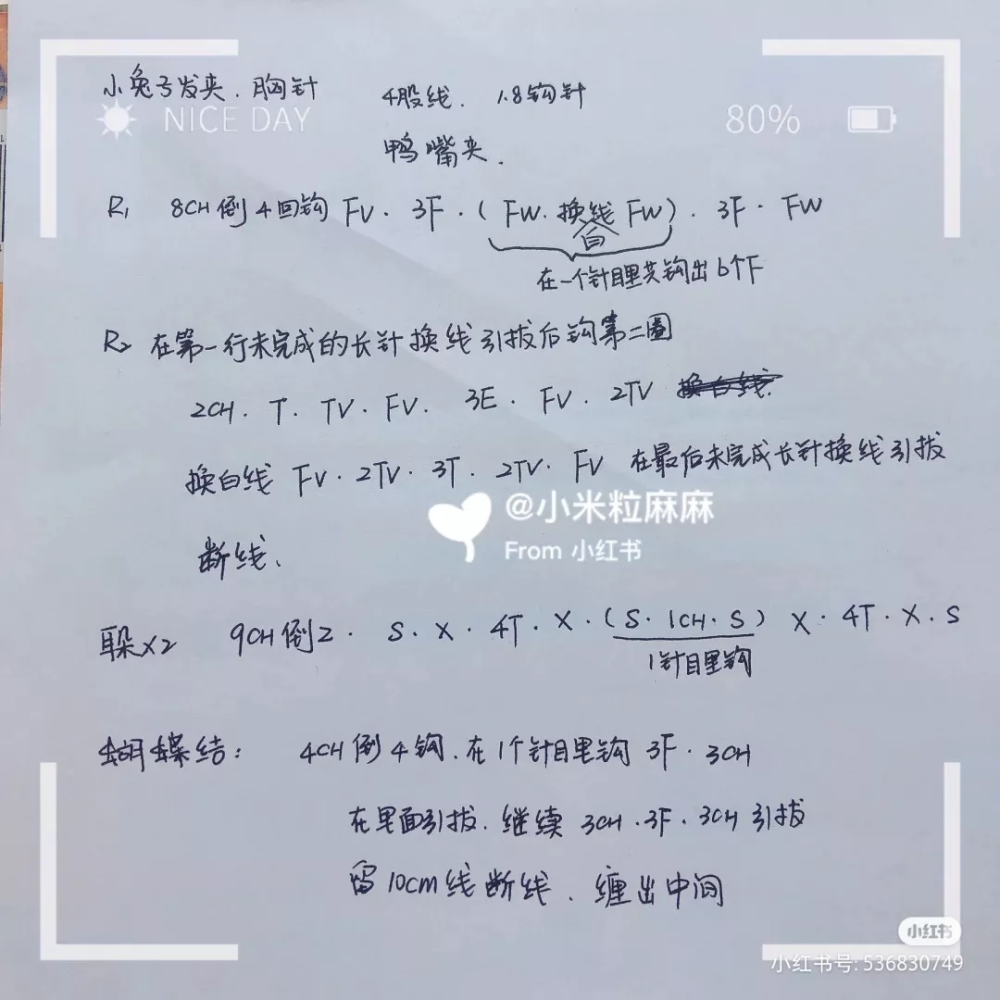 小兔子发夹、胸针
4股线、1.8钩针
NICE DAY
80%
鸭嘴夹、
R1 8CH倒4回钩 FV·3F·(FW·换线FW)·3F·FW
白
在一个针目里共钩出6个F
R2 在第一行未完成的长针换线引拔后钩第二圈
2CH·T·TV·FV·3E·FV·2TV
换白线 FV·2TV·3T·2TV·FV 在最后未完成长针换线引拔
@小米粒麻麻
From 小红书
断线、
耳朵X2 9CH倒2·S·X·4T·X·(S·1CH·S) X·4T·X·S
1针目里钩
蝴蝶结: 4CH倒4钩、在1个针目里钩 3F·3CH
在里面引拔、继续 3CH·3F·3CH引拔
留10cm线断线、缠出中间
小红书
小红书号: 536830749